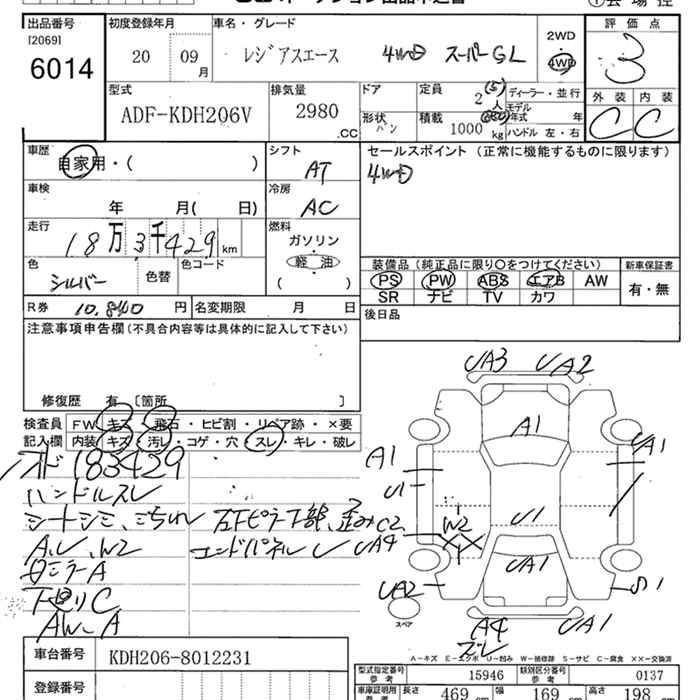 出品番号 初度登録年月 車名・グレード 評価点
[2069]
6014 20 09月 レジアスエース 4WD スーパーGL 2WD・4WD 3
外装 内装
C C
型式 排気量 ドア 定員 2(5)人 ディーラー・並行
ADF-KDH206V 2980.CC モデル年式 年
形状 バン 積載 1000 kg ハンドル 左・右
車歴 シフト セールスポイント (正常に機能するものに限ります)
自家用・( ) AT 4WD
車検 冷房
年 月( 日) AC
走行 燃料
18万3千429km ガソリン・軽油
( )
色 シルバー 色替 色コード
装備品 (純正品に限り○をつけてください) 新車保証書
PS PW ABS エアB AW 有・無
SR ナビ TV カワ
R券 10,840円 名変期限 月 日 後日品
注意事項申告欄(不具合内容等は具体的に記入して下さい)
修復歴 有 [箇所 ]
検査員 FW キズ・飛石・ヒビ割・リペア跡・×要
記入欄 内装 キズ・汚レ・コゲ・穴・スレ・キレ・破レ
183429
ハンドルスレ
シートシミ、
A,U,W2 エンドパネルU
下廻りC
AW-A
UA3 UA2
A1
A1 UA1
U1
U1
C2
W2
UA4
UA1
UA2 S1
スペア
A4 UA1
A-キズ E-エクボ U-凹み W-補修跡 S-サビ C-腐食 ××-交換済
車台番号 KDH206-8012231
型式指定番号 参考 15946 類別区分番号 参考 0137
登録番号
車庫証明用 参考 長さ 469 cm 幅 169 cm 高さ 198 cm